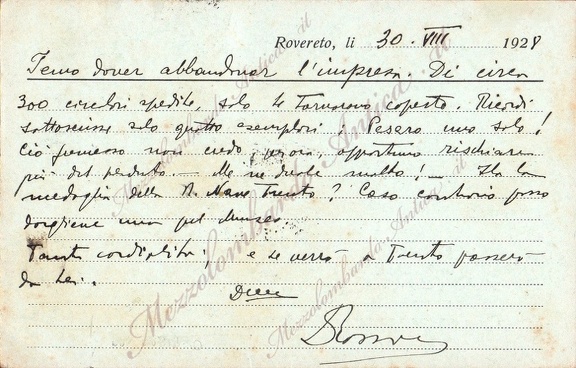 Rovereto, li 30. VIII 1928
Temo dover abbandonar l'impresa. Di circa
300 circolari spedite, solo 14 tornarono coperte. Ricordi
sottoscrisse solo quattro esemplari, Pesaro uno solo!
Ciò premesso non credo, opportuno rischiare
più del perduto. — Me ne duole molto! — Ha la
medaglia della R. Nave Trento? Caso contrario posso
dargliene una pel Museo.
Tante cordialità, e se verrò a Trento passerò
da Lei.
Mezzolombardo Antica.it
Mezzolombardo Antica.it